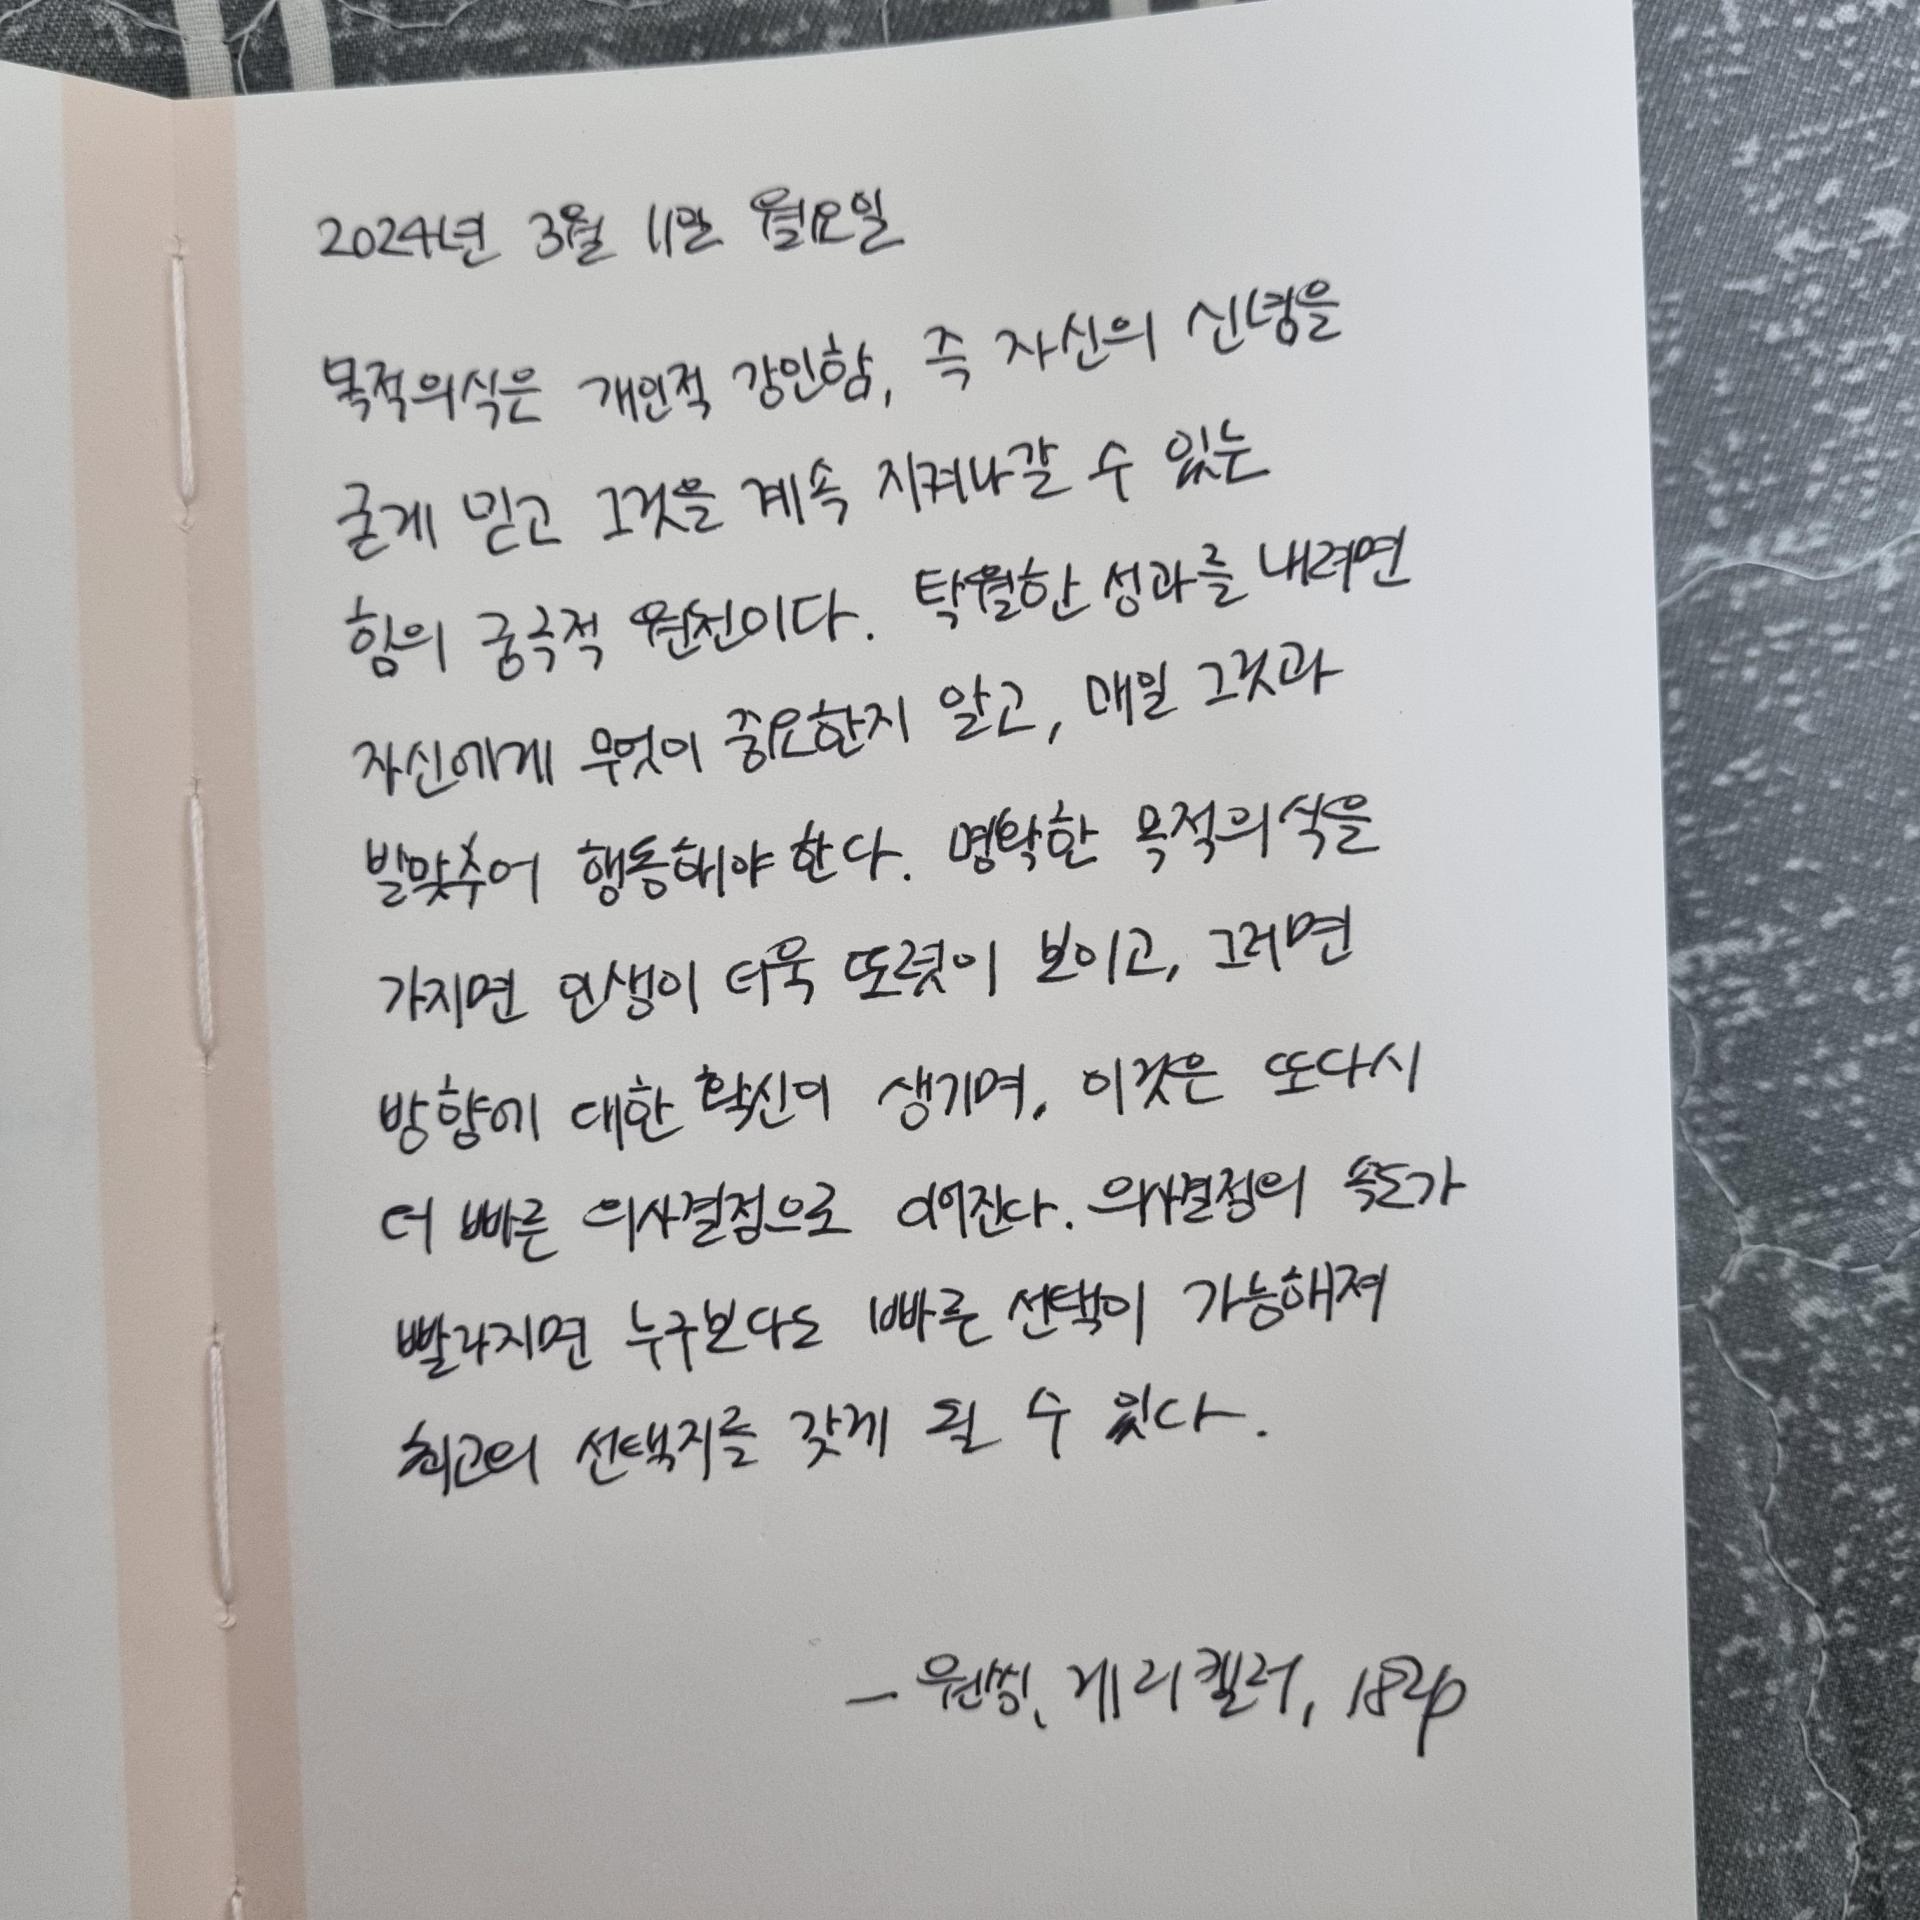 2024년 3월 11일 월요일
목적의식은 개인적 강인함, 즉 자신의 신념을
굳게 믿고 그것을 계속 지켜나갈 수 있는
힘의 궁극적 원천이다. 탁월한 성과를 내려면
자신에게 무엇이 중요한지 알고, 매일 그것과
발맞추어 행동해야 한다. 명확한 목적의식을
가지면 인생이 더욱 또렷이 보이고, 그러면
방향에 대한 확신이 생기며, 이것은 또다시
더 빠른 의사결정으로 이어진다. 의사결정의 속도가
빨라지면 누구보다도 빠른 선택이 가능해져
최고의 선택지를 갖게 될 수 있다.
— 원씽, 게리켈러, 182p